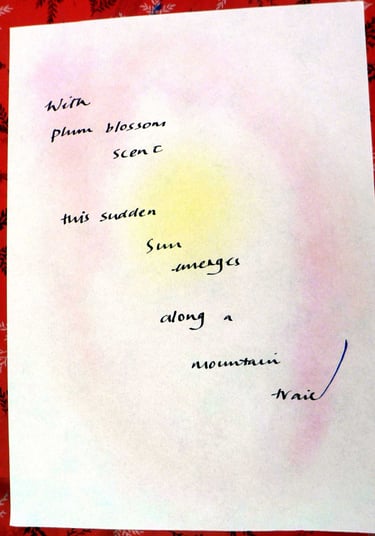 With
plum blossom
scent
this sudden
Sun
emerges
along a
mountain
trail